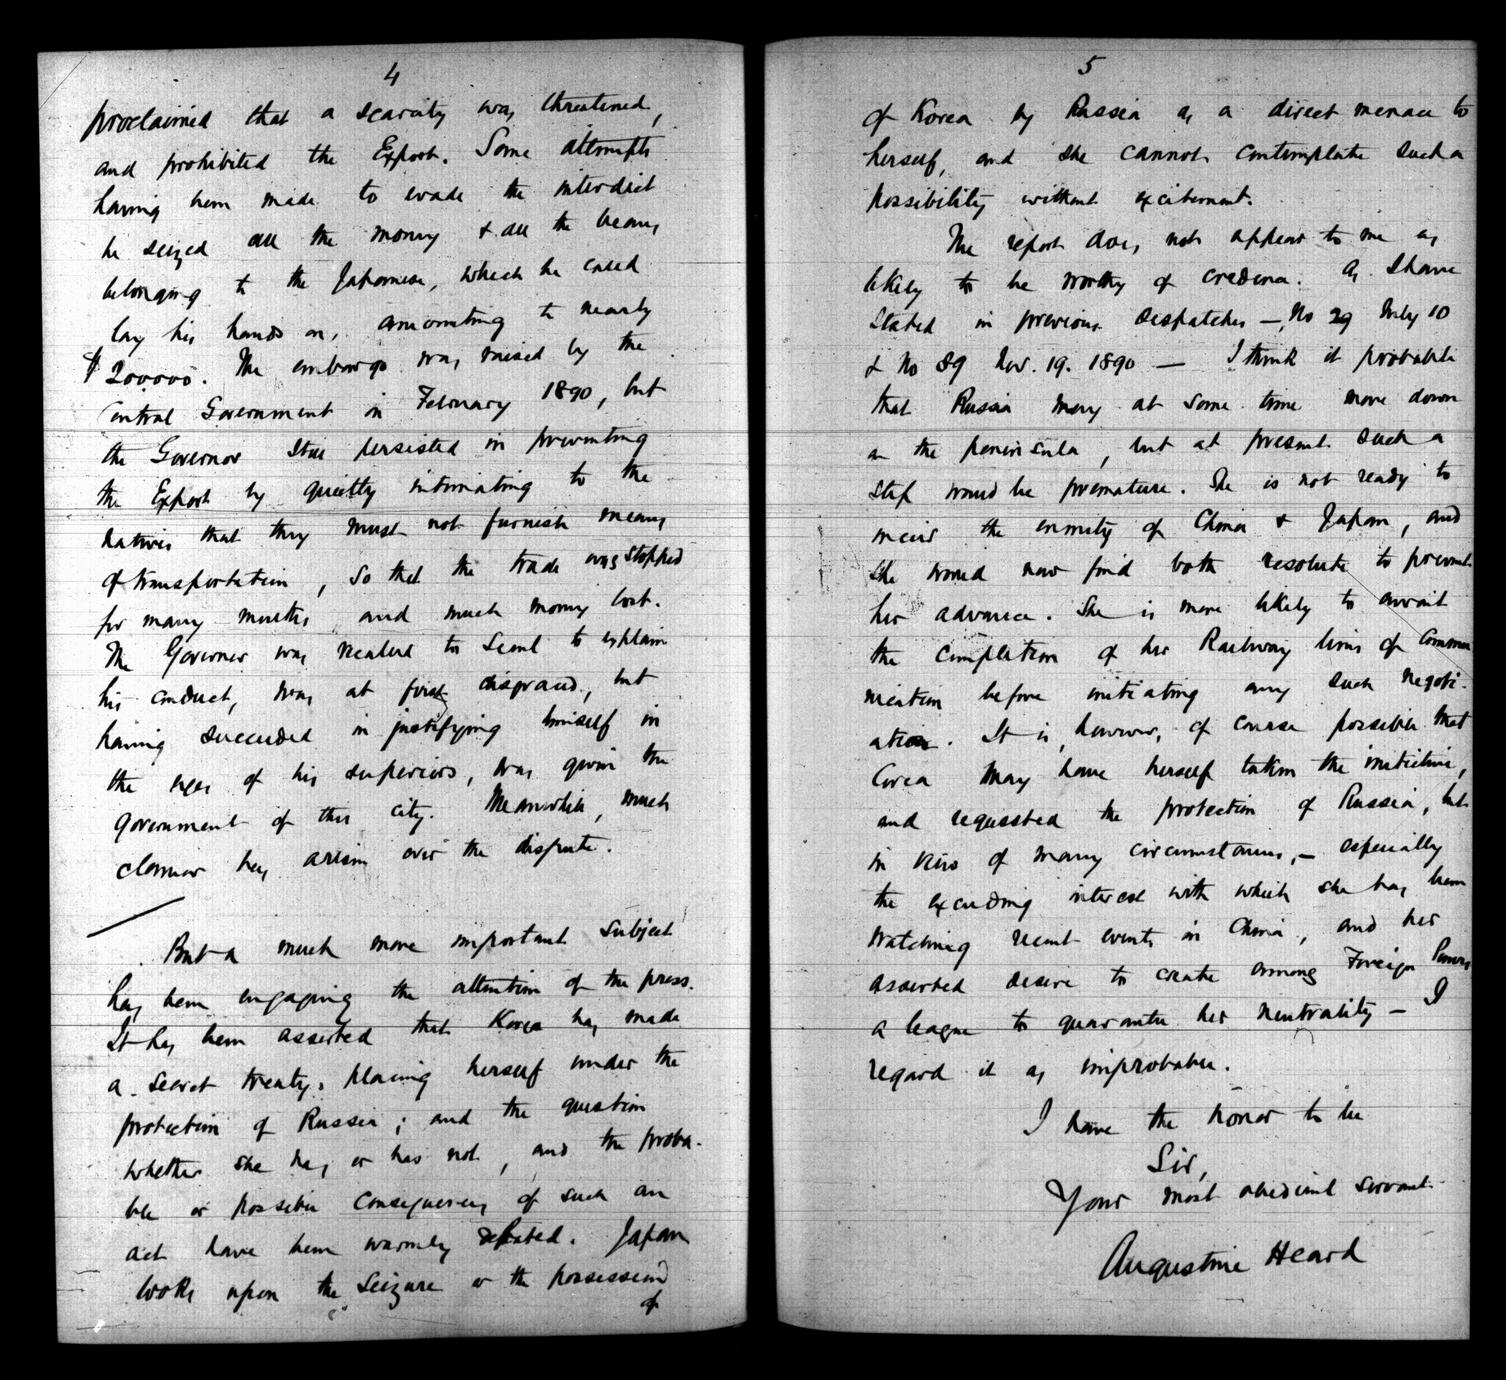 4
proclaimed that a scarcity was threatened,
and prohibited the Export. Some attempts
having been made to evade the interdict
he seized all the money & all the beans
belonging to the Japanese, which he could
lay his hands on, amounting to nearly
$200000. The embargo was raised by the
Central Government in February 1890, but
the Governor still persisted in preventing
the Export by quietly intimating to the
natives that they must not furnish means
of transportation, so that the trade was stopped
for many months, and much money lost.
The Governor was recalled to Seoul to explain
his conduct, was at first disgraced, but
having succeeded in justifying himself in
the eyes of his superiors, was given the
government of this city. Meanwhile, much
clamour has arisen over the dispute.
But a much more important subject
has been engaging the attention of the press.
It has been asserted that Korea has made
a secret treaty, placing herself under the
protection of Russia; and the question
whether she has, or has not, and the proba-
ble or possible consequences of such an
act have been warmly debated. Japan
looks upon the seizure or the possession
of
5
of Korea by Russia as a direct menace to
herself, and she cannot contemplate such a
possibility without excitement.
The report does not appear to me as
likely to be worthy of credence. As I have
stated in previous despatches—, No 29 July 10
& No 89 Nov. 19. 1890 — I think it probable
that Russia may at some time move down
on the peninsula, but at present such a
step would be premature. She is not ready to
incur the enmity of China & Japan, and
she would now find both resolute to prevent
her advance. She is more likely to await
the completion of her Railway lines of commu
nication before initiating any such negoti-
ation. It is, however, of course possible that
Corea may have herself taken the initiative,
and requested the protection of Russia, but
in view of many circumstances,— especially
the exceeding interest with which she has been
watching recent events in China, and her
asserted desire to create among Foreign Powers
a league to guarantee her neutrality — I
regard it as improbable.
I have the honor to be
Sir,
Your most obedient servant.
Augustine Heard